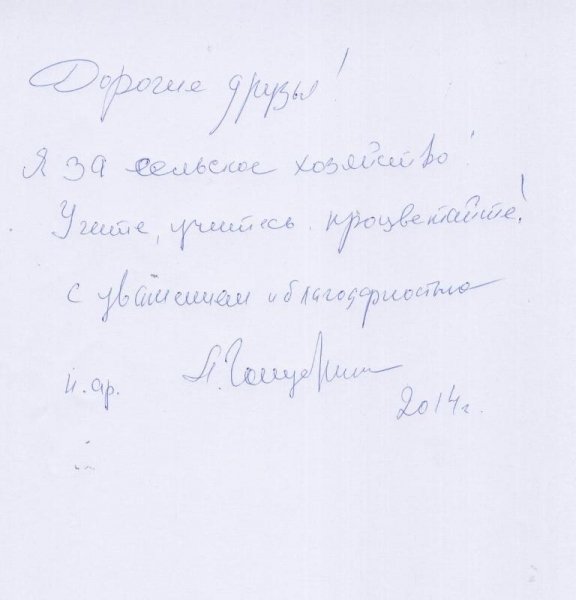 Дорогие друзья!
Я за сельское хозяйство!
Учите, учитесь, процветайте!
с уважением и благодарностью
н. ар.
2014г.